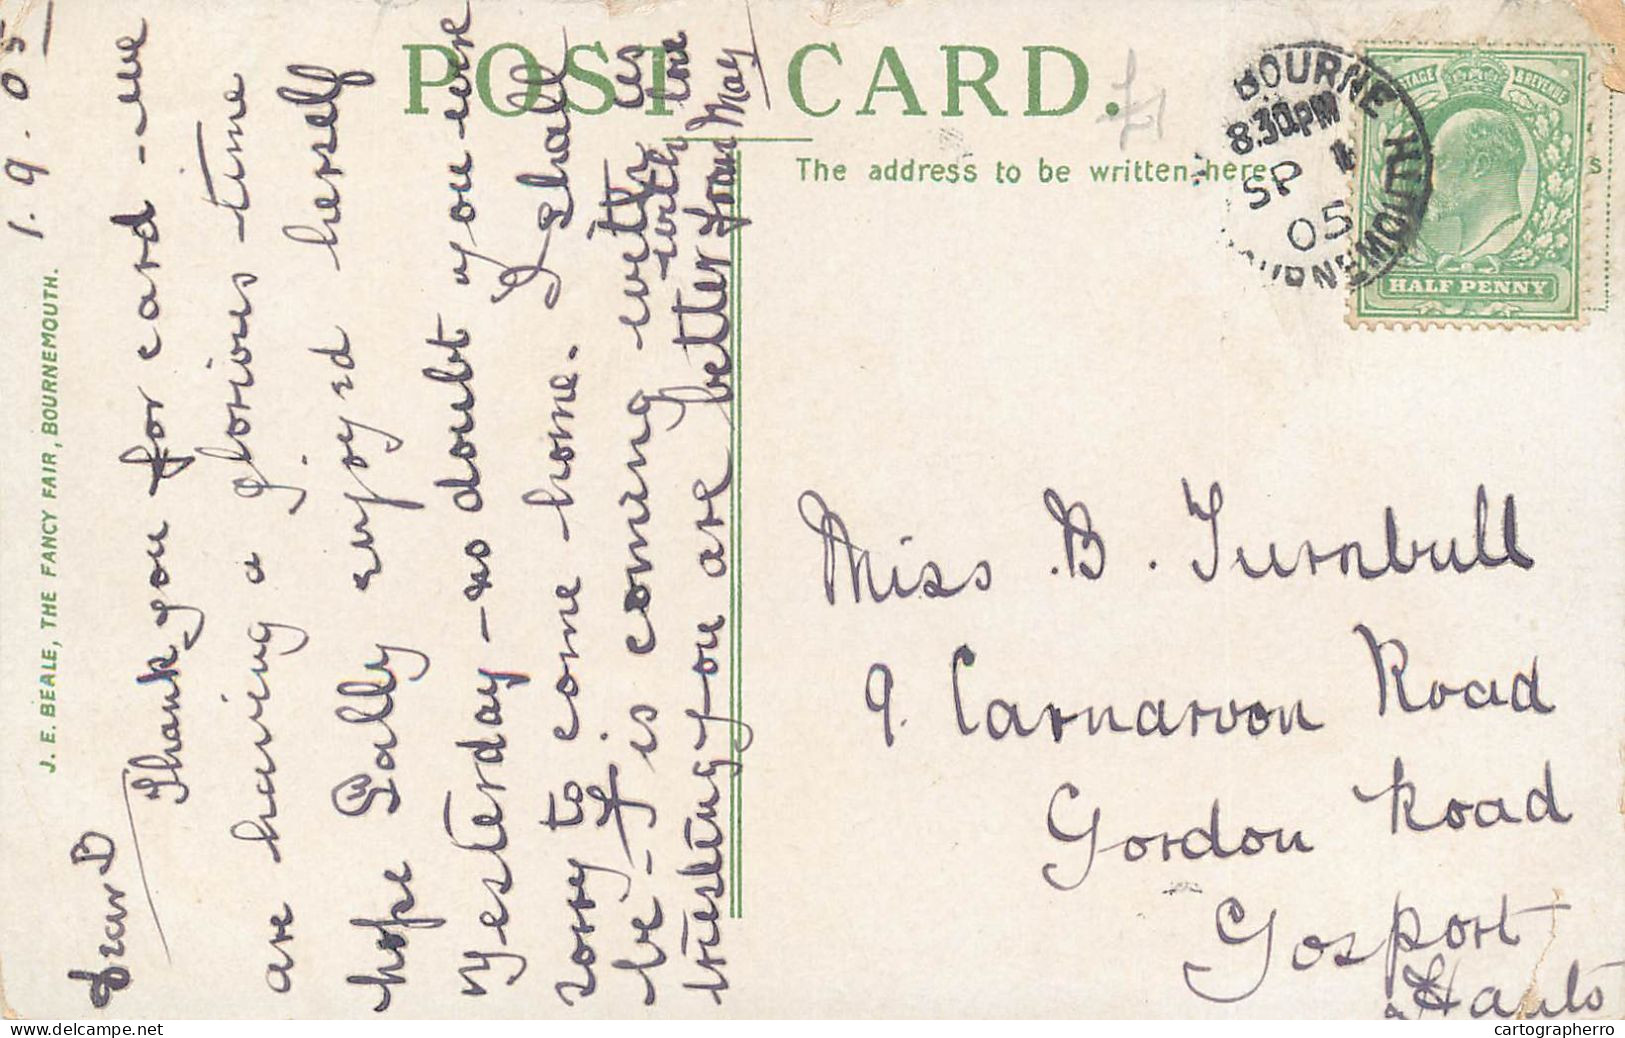 POST CARD.
The address to be written here
BOURNEMOUTH
8.30PM
SP 1
05
BOURNEMOUTH
POSTAGE & REVENUE
HALF PENNY
J. E. BEALE, THE FANCY FAIR, BOURNEMOUTH.
1.9.05
Dear B
Thank you for card - we
are having a glorious time
hope Sally enjoyed herself
yesterday - no doubt you were
sorry to come home. I shall
be - J is coming with us
trusting you are better
with love
from May
Miss B. Turnbull
9. Carnarvon Road
Gordon Road
Gosport
Hants
cartographerro